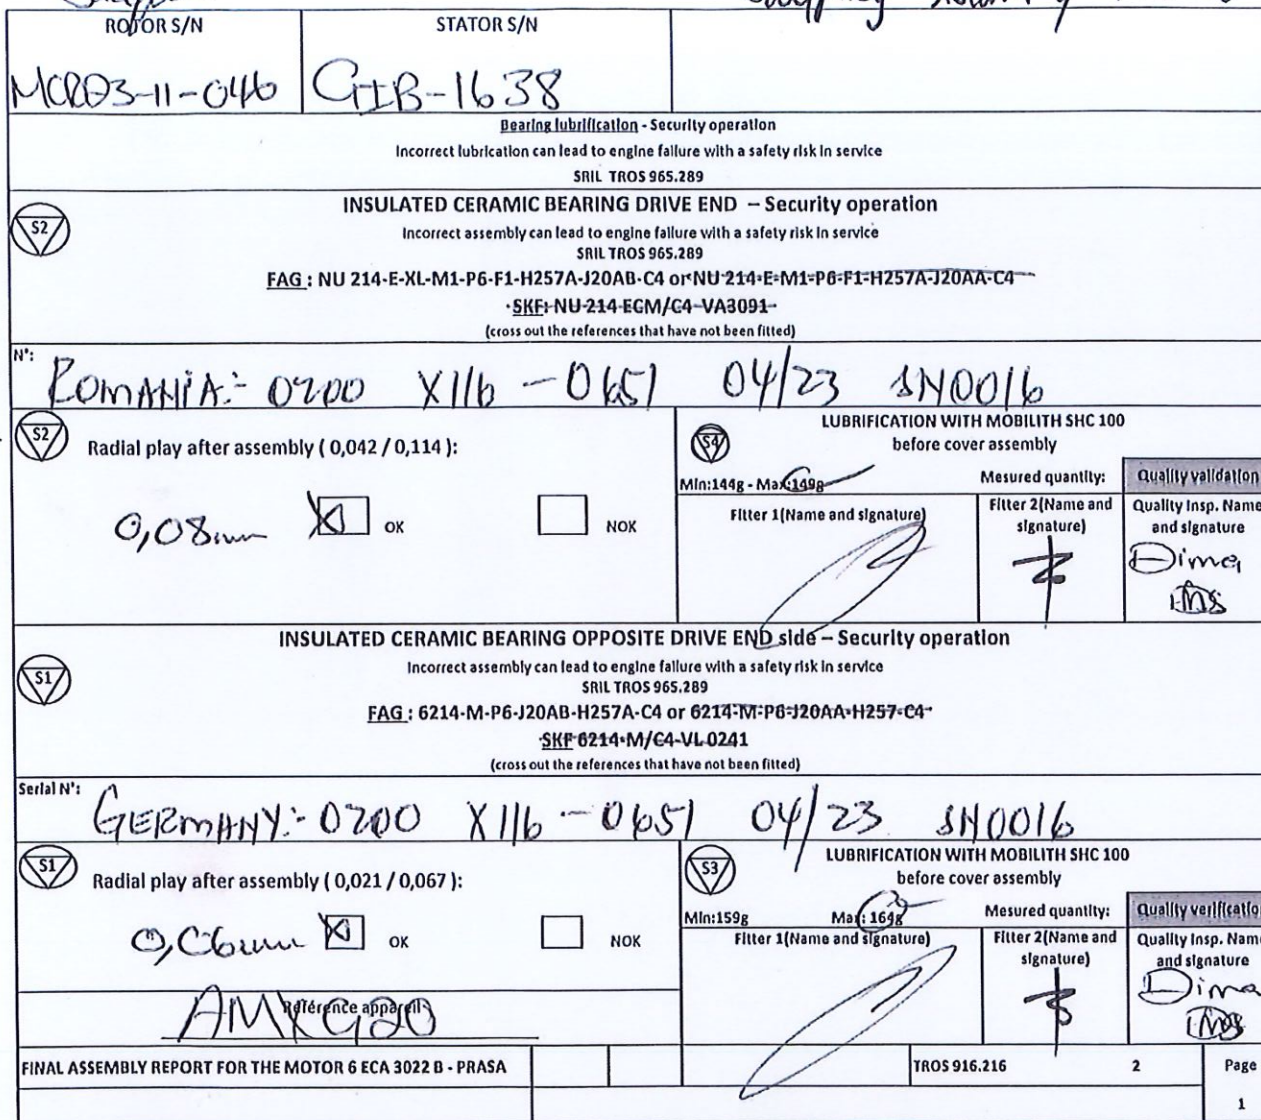 ROTOR S/N
STATOR S/N
MCRD3-11-046
GIB-1638
Bearing lubrification - Security operation
Incorrect lubrication can lead to engine failure with a safety risk in service
SRIL TROS 965.289
S2
INSULATED CERAMIC BEARING DRIVE END – Security operation
Incorrect assembly can lead to engine failure with a safety risk in service
SRIL TROS 965.289
FAG : NU 214-E-XL-M1-P6-F1-H257A-J20AB-C4 or NU 214-E-M1-P6-F1-H257A-J20AA-C4
SKF: NU 214 ECM/C4-VA3091
(cross out the references that have not been fitted)
N°:
ROMANIA:- 0200 X116 - 0651 04/23 SN0016
S2
Radial play after assembly ( 0,042 / 0,114 ):
0,08mm
OK
NOK
S4
LUBRIFICATION WITH MOBILITH SHC 100
before cover assembly
Min:144g - Max:149g
Mesured quantity:
Quality validation
Fitter 1(Name and signature)
Fitter 2(Name and signature)
Quality Insp. Name and signature
Dima
INS
INSULATED CERAMIC BEARING OPPOSITE DRIVE END side – Security operation
S1
Incorrect assembly can lead to engine failure with a safety risk in service
SRIL TROS 965.289
FAG : 6214-M-P6-J20AB-H257A-C4 or 6214-M-P6-J20AA-H257-C4
SKF 6214-M/C4-VL0241
(cross out the references that have not been fitted)
Serial N°:
GERMANY:- 0200 X116 - 0651 04/23 SN0016
S1
Radial play after assembly ( 0,021 / 0,067 ):
0,06mm
OK
NOK
Référence appareil
AMXG20
S3
LUBRIFICATION WITH MOBILITH SHC 100
before cover assembly
Min:159g
Max: 164g
Mesured quantity:
Quality verificatio
Fitter 1(Name and signature)
Fitter 2(Name and signature)
Quality Insp. Name and signature
Dima
INS
FINAL ASSEMBLY REPORT FOR THE MOTOR 6 ECA 3022 B - PRASA
TROS 916.216
2
Page
1